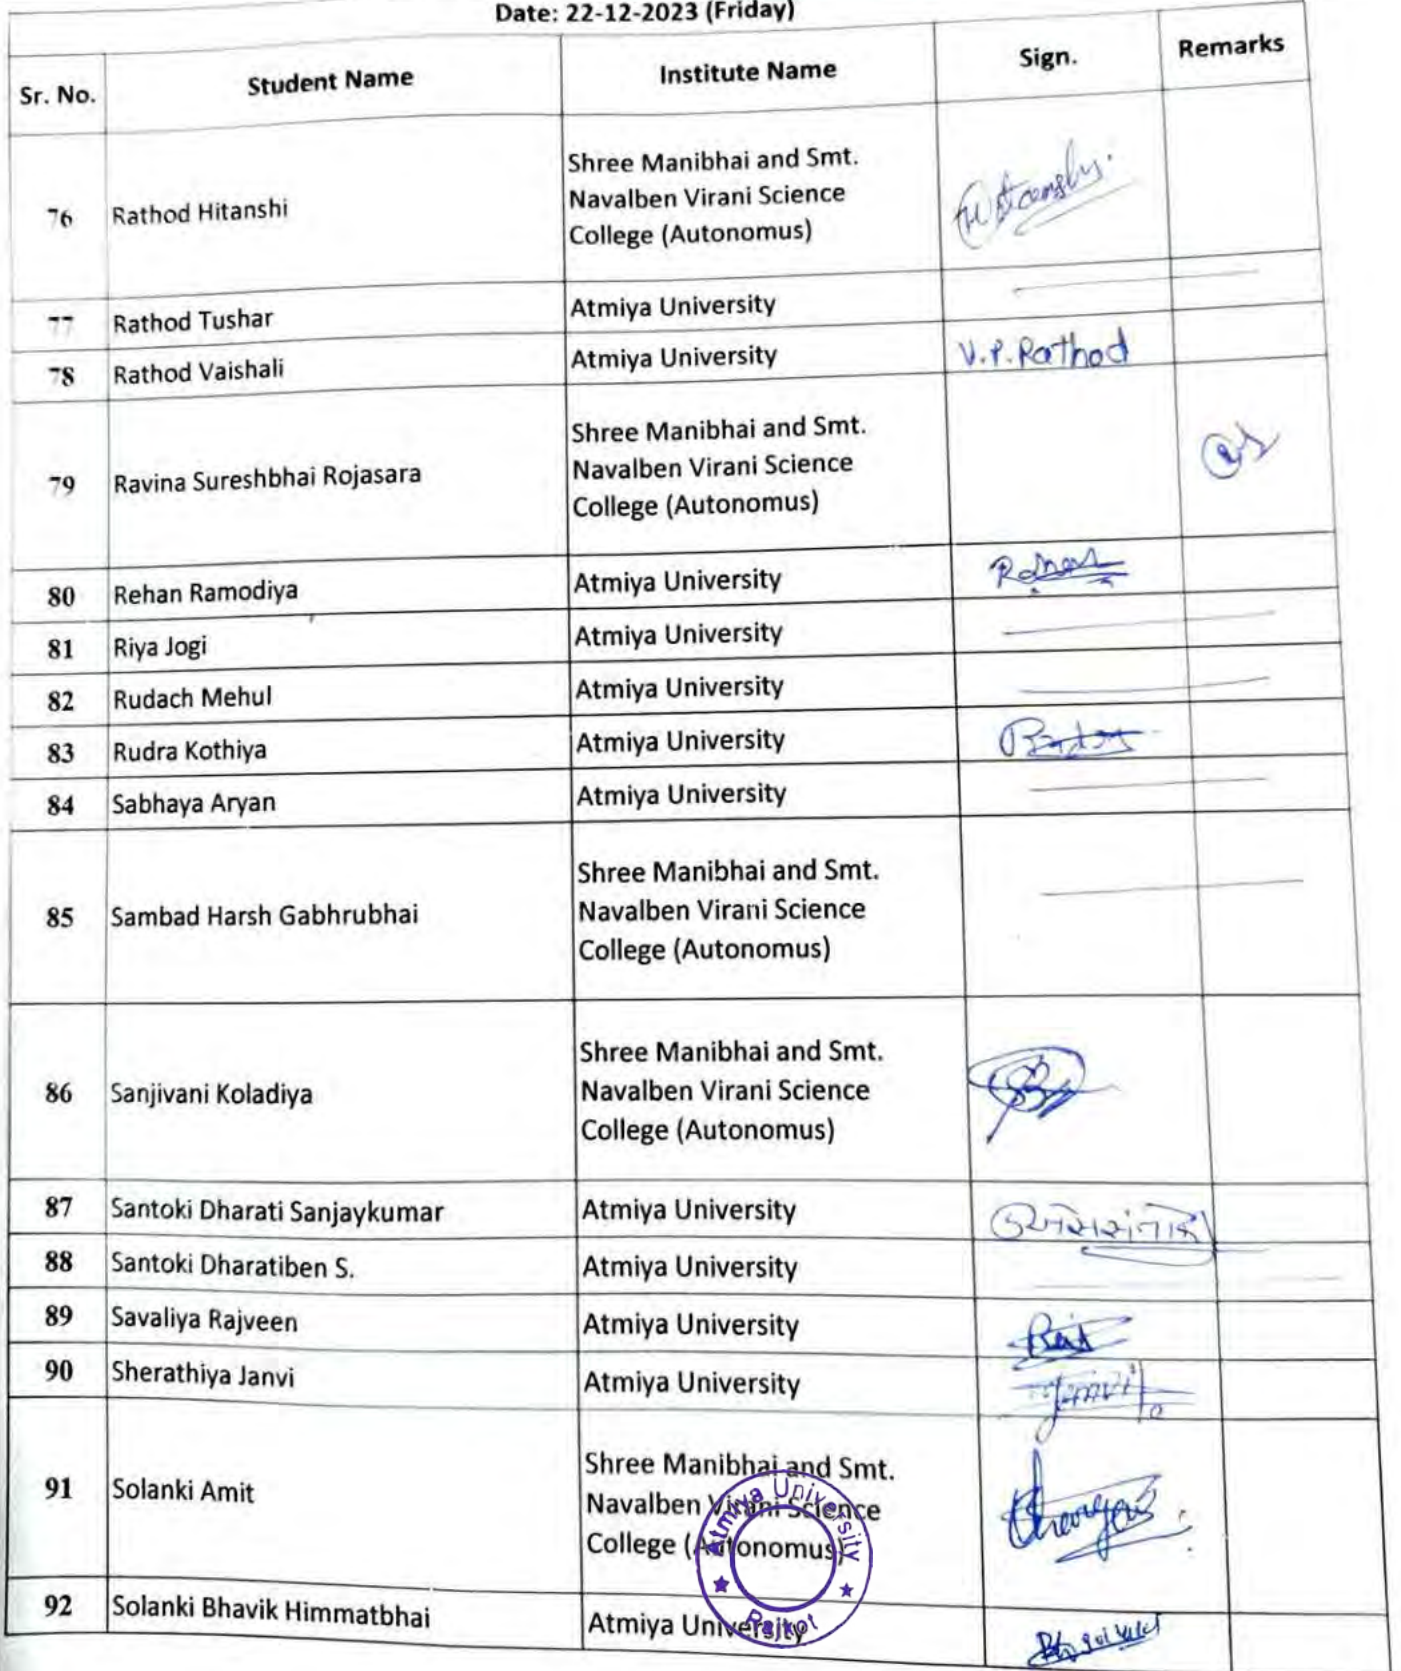 Date: 22-12-2023 (Friday)
Sr. No. Student Name Institute Name Sign. Remarks
76 Rathod Hitanshi Shree Manibhai and Smt.
Navalben Virani Science
College (Autonomus)
77 Rathod Tushar Atmiya University
78 Rathod Vaishali Atmiya University V.P. Rathod
79 Ravina Sureshbhai Rojasara Shree Manibhai and Smt.
Navalben Virani Science
College (Autonomus)
80 Rehan Ramodiya Atmiya University
81 Riya Jogi Atmiya University
82 Rudach Mehul Atmiya University
83 Rudra Kothiya Atmiya University
84 Sabhaya Aryan Atmiya University
85 Sambad Harsh Gabhrubhai Shree Manibhai and Smt.
Navalben Virani Science
College (Autonomus)
86 Sanjivani Koladiya Shree Manibhai and Smt.
Navalben Virani Science
College (Autonomus)
87 Santoki Dharati Sanjaykumar Atmiya University
88 Santoki Dharatiben S. Atmiya University
89 Savaliya Rajveen Atmiya University
90 Sherathiya Janvi Atmiya University
91 Solanki Amit Shree Manibhai and Smt.
Navalben Virani Science
College (Autonomus)
92 Solanki Bhavik Himmatbhai Atmiya University
Atmiya University
Rajkot